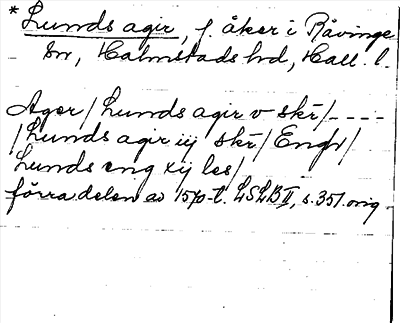 *Lunds agir, f. åker i Råvinge
sn, Halmstads hd, Hall. l.
Ager / Lunds agir v skr̄ / - - - -
/ Lunds agir iij skr̄ / Engr /
Lunds eng xij les /
förra delen av 1570-t. LSLB II, s. 351. orig.